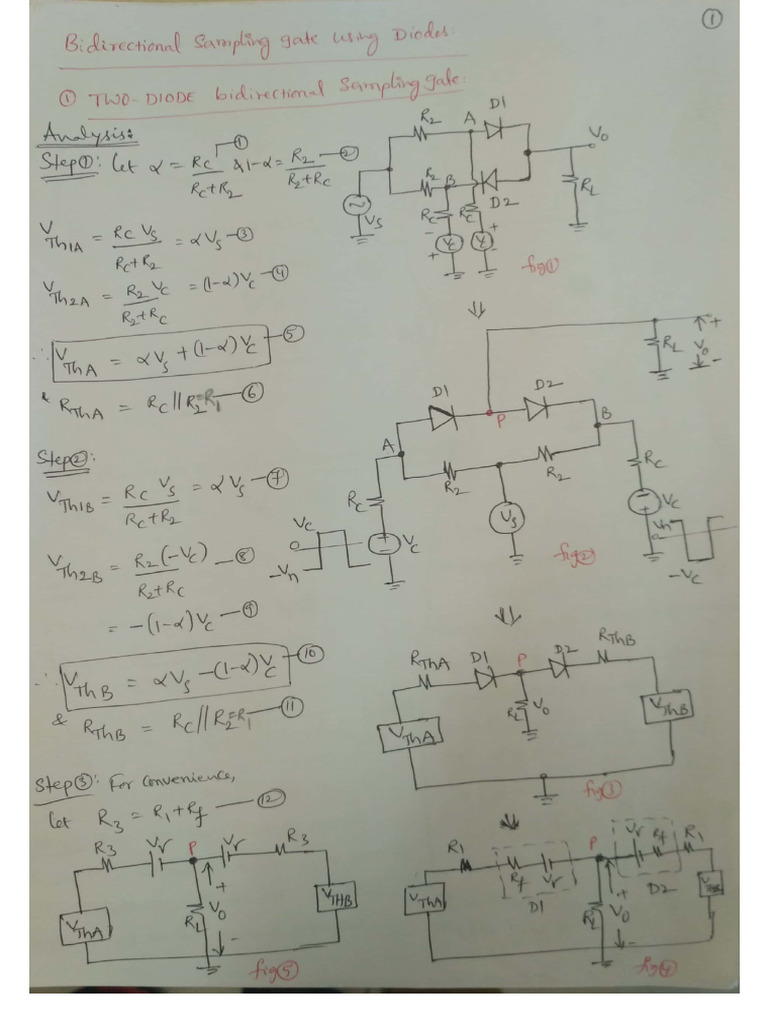 ①
Bidirectional Sampling gate using Diodes:
① TWO-DIODE bidirectional Sampling gate:
Analysis:
Step①: Let α = Rc/(Rc+R2) —① & 1-α = R2/(R2+Rc) —②
VTh1A = Rc Vs/(Rc+R2) = αVs —③
VTh2A = R2 Vc/(R2+Rc) = (1-α)Vc —④
∴ VThA = αVs + (1-α)Vc —⑤
& RThA = Rc||R2=R1 —⑥
Step②:
VTh1B = Rc Vs/(Rc+R2) = αVs —⑦
VTh2B = R2(-Vc)/(R2+Rc) —⑧
= -(1-α)Vc —⑨
∴ VThB = αVs -(1-α)Vc —⑩
& RThB = Rc||R2=R1 —⑪
Step③: For convenience,
let R3 = R1+Rf —⑫
R3 Vr P Vr R3
VThA RL + V0 - VTHB
fig⑤
R2 A D1 V0
R2 B D2 RL
Vs Rc Rc
- +
Vc Vc
+ -
fig①
⇓
+
RL V0
-
D1 P D2
A B
R2 R2
Rc Vs Rc
Vc Vc Vc
-Vn Vn
-Vc
fig②
⇓
RThA D1 P D2 RThB
VThA RL V0 VThB
fig③
⇓
R1 Rf Vr P Vr Rf R1
D1 D2
VThA RL + V0 -
fig④